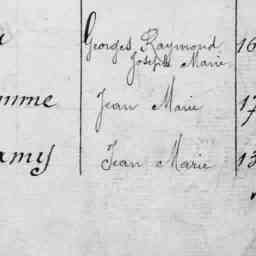 Georges Raymond 16
Joseph Marie
mme Jean Marie 17
amy Jean Marie 13